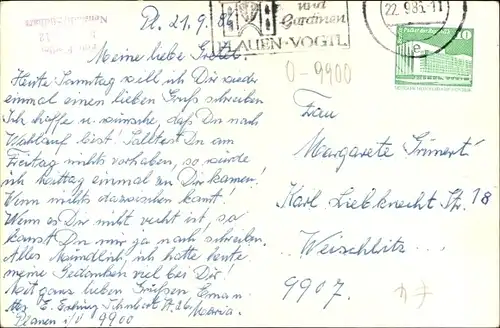 Pl. 21.9.86
Meine liebe Gretel!
Heute Samstag will ich Dir wieder
einmal einen lieben Gruß schreiben
Ich hoffe u. wünsche, daß Du noch
wohlauf bist! Solltest Du am
Freitag nichts vorhaben, so würde
ich einmal zu Dir kommen!
Wenn nichts dazwischen kommt!
Wenn es Dir nicht recht ist, so
kannst Du mir ja noch schreiben.
Alles Mündlich, ich hatte heute
meine Gedanken viel bei Dir!
Mit ganz lieben Grüßen
Maria
Plauen i/V 9900
und
Gardinen
PLAUEN-VOGTL
22.9.86-11
e
10
0-9900
Frau
Margarete Grünert
Karl Liebknecht Str. 18
Weischlitz...
9907.